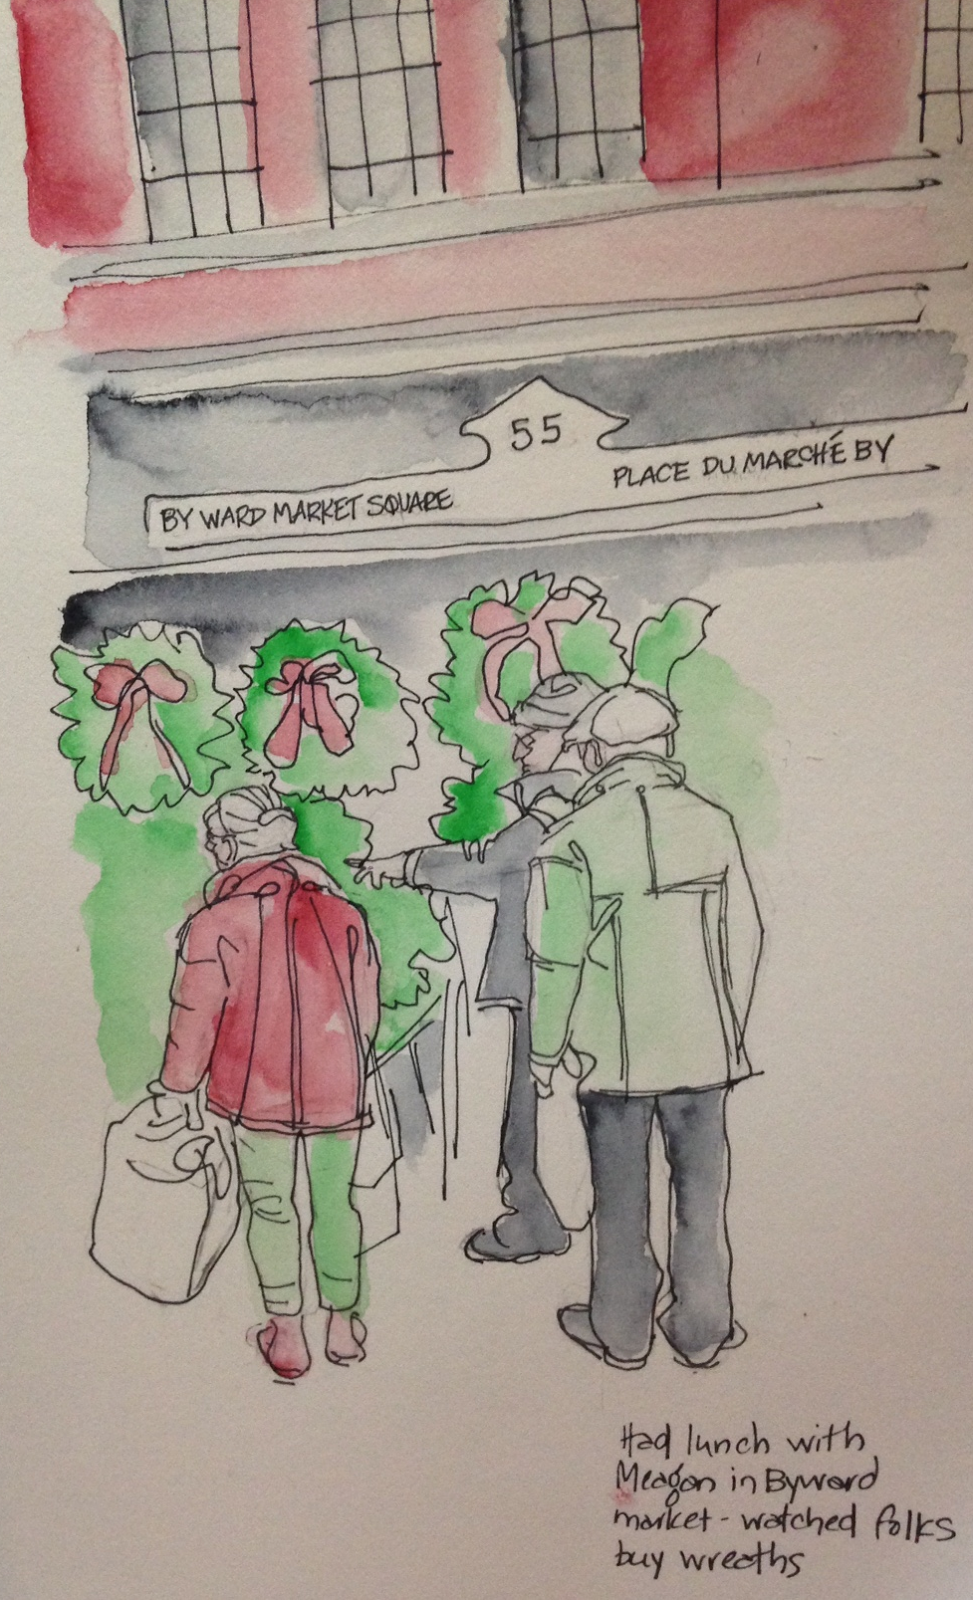 55
BY WARD MARKET SQUARE
PLACE DU MARCHÉ BY
Had lunch with
Meagan in Byward
market - watched folks
buy wreaths